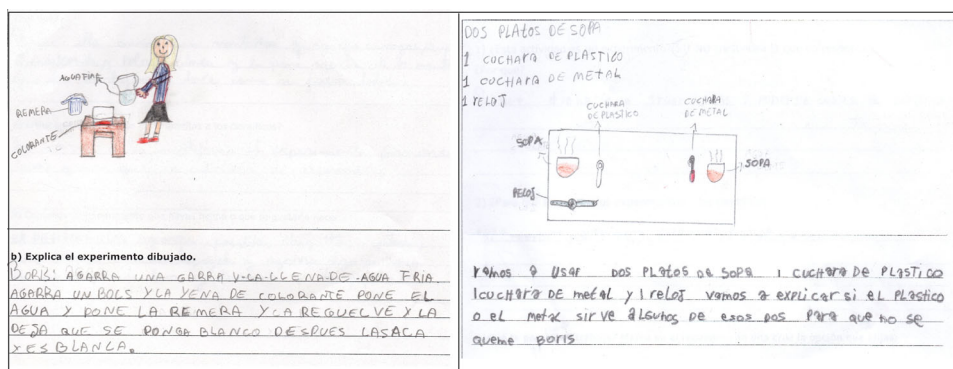 AGUA FIRA
REMERA
COLORANTE
b) Explica el experimento dibujado.
BORIS: AGARRA UNA GARRA Y-LA-LLENA-DE-AGUA FRIA
AGARRA UN BOLS Y LA YENA DE COLORANTE PONE EL
AGUA Y PONE LA REMERA Y LA REGUELVE Y LA
DEJA QUE SE PONGA BLANCO DESPUES LA SACA
Y ES BLANCA.
DOS PLATOS DE SOPA
1 CUCHARA DE PLASTICO
1 CUCHARA DE METAL
1 RELOJ
CUCHARA
DE PLASTICO
CUCHARA
DE METAL
SOPA
SOPA
RELOJ
vamos a usar dos platos de sopa 1 cuchara de plastico
1 cuchara de metal y 1 reloj vamos a explicar si el plastico
o el metal sirve algunos de esos dos para que no se
queme Boris